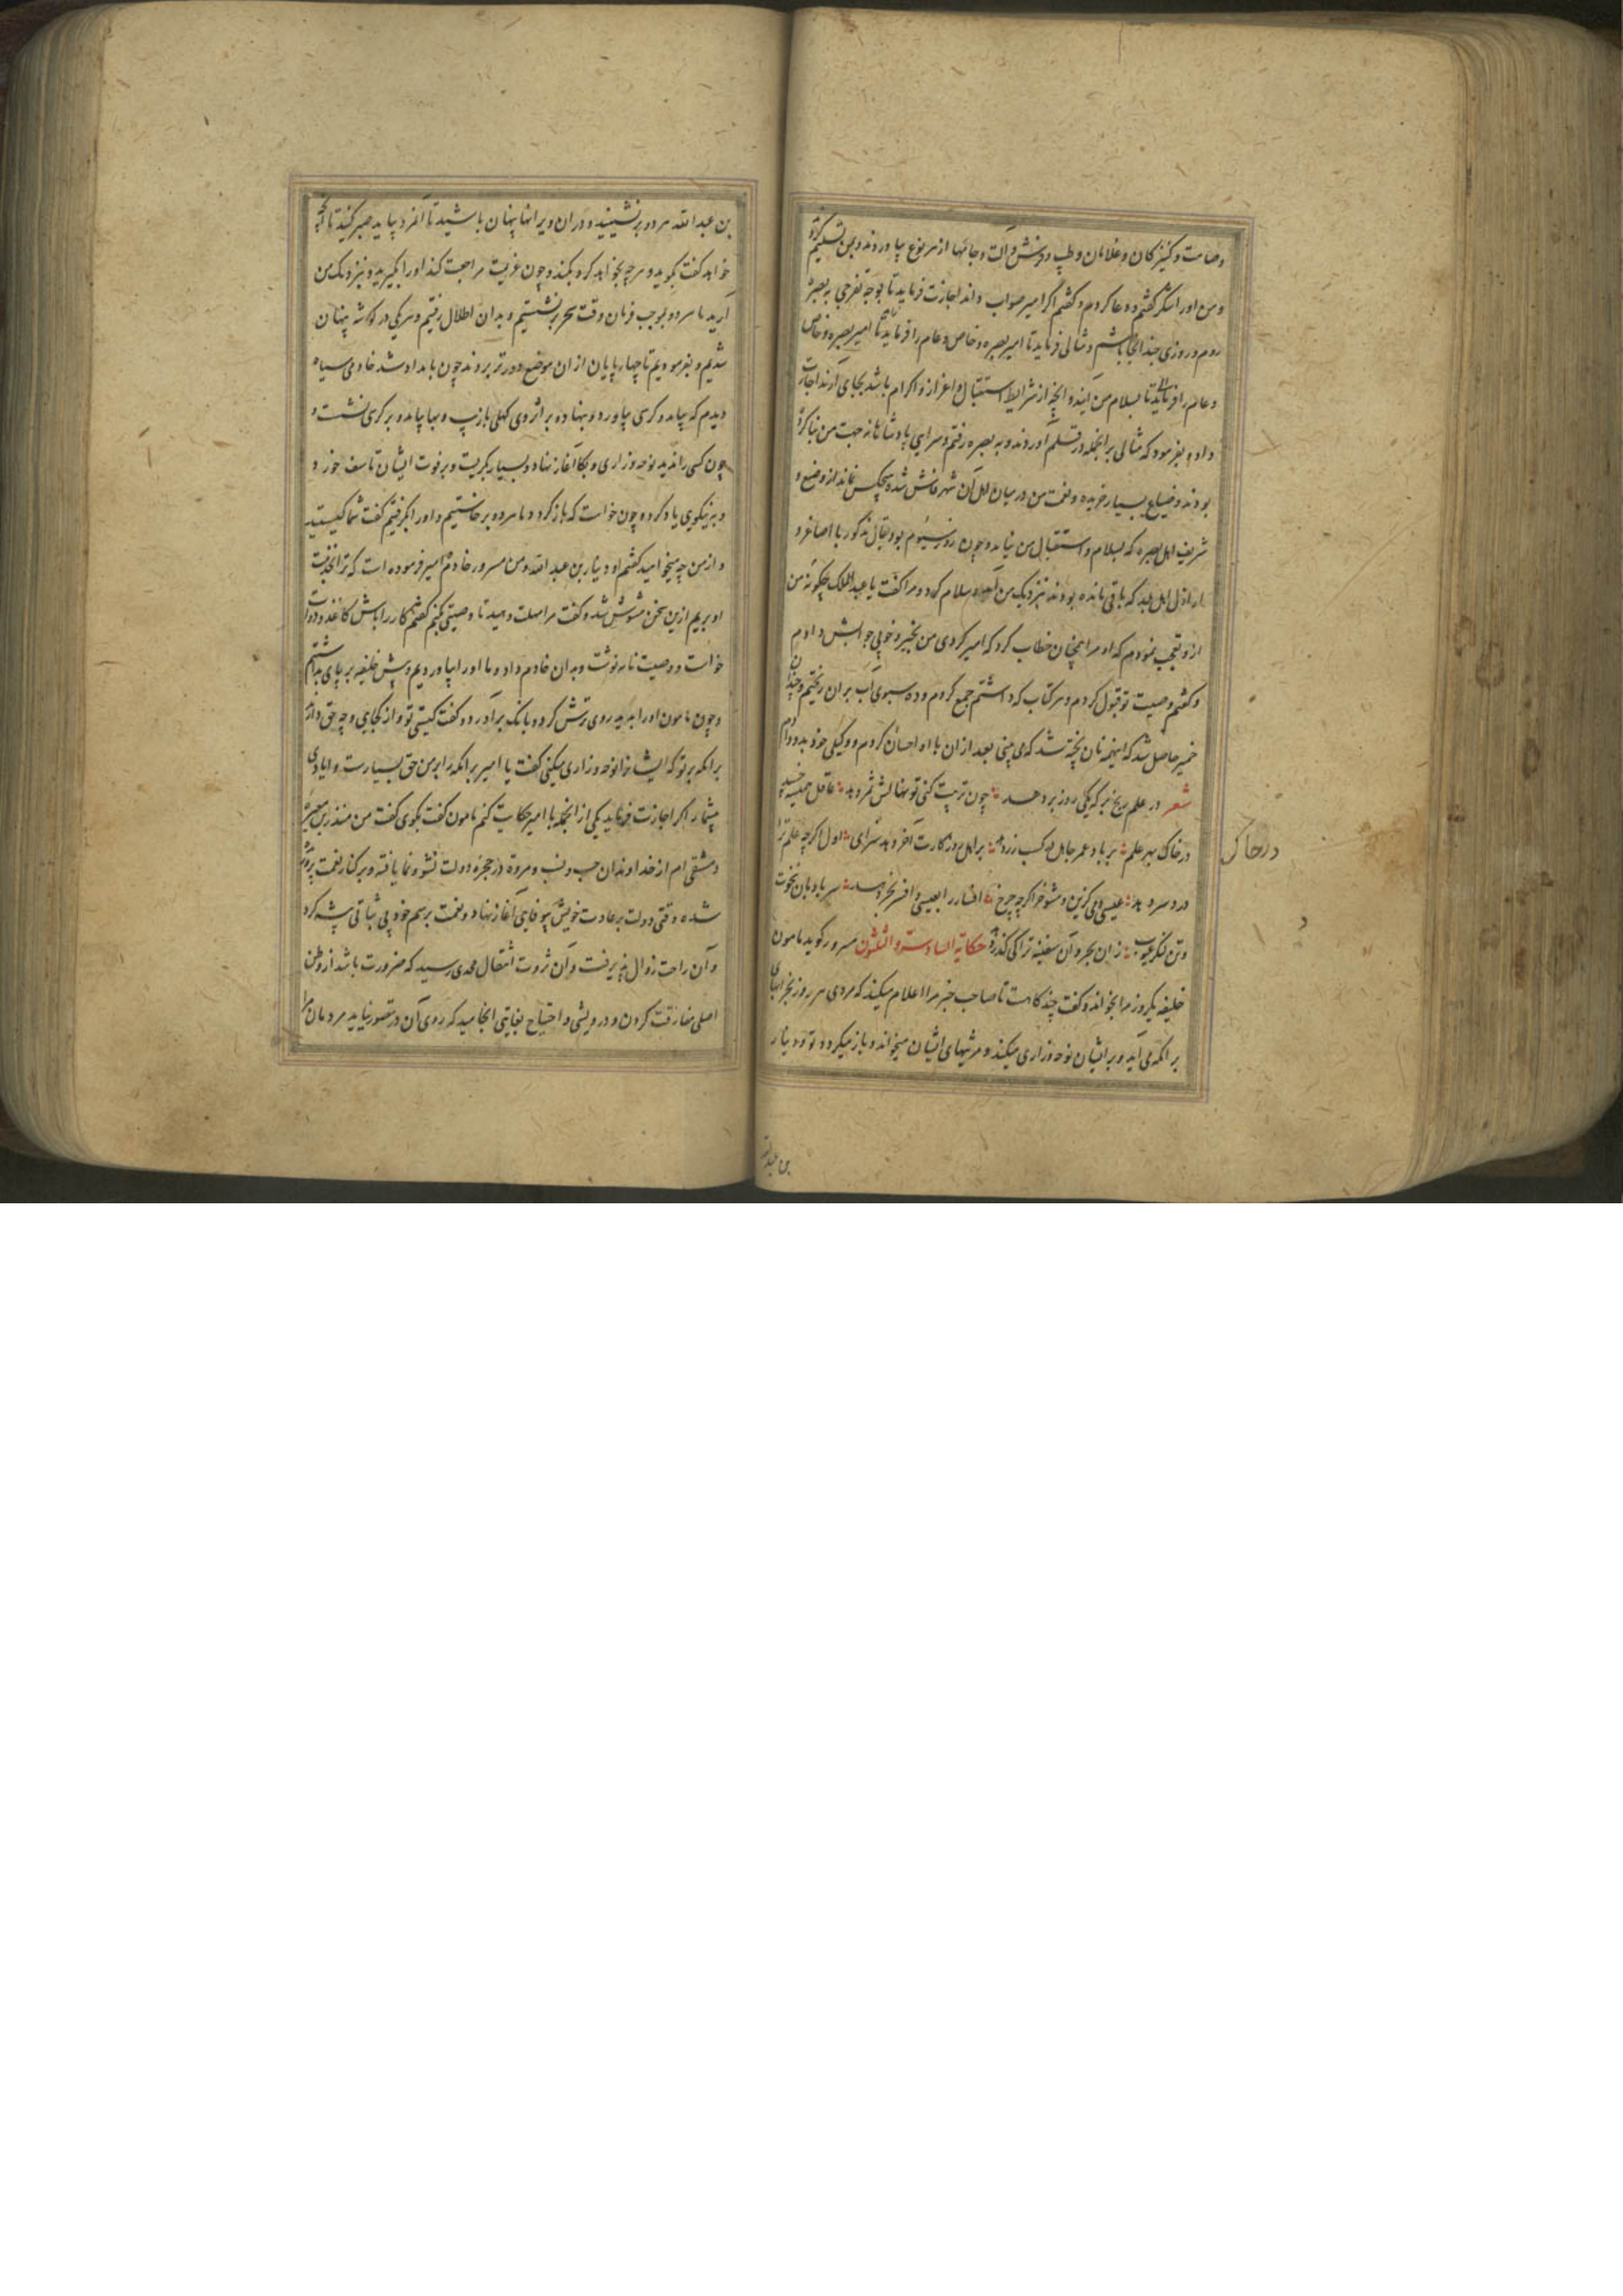 وصامت و کنیزکان و غلامان و طیب و فرش و آلت و جامها از هر نوع بیاوردند و بمن تسلیم کرد
و من او را شکر گفتم و دعا کردم و گفتم اگر امیر صواب داند اجازت فرماید تا بوجه تفرجی به بصره
روم و روزی چند آنجا باشم و مثالی فرماید تا امیر بصره و خاص و عام را فرماید تا امیر بصره و خاص
و عام را فرماید تا بسلام من آیند و آنچه از شرایط استقبال و اعزاز و اکرام باشد بجای آرند اجازت
داد و بفرمود که مثالی بر انجمله در قلم آوردند و به بصره رفتم و سرایی پادشاهانه جهت من بنا کرده
بودند و ضیاع بسیار خریده و نعمت من در میان اهل آن شهر فاش شده هیچکس نماند از وضیع و
شریف اهل بصره که بسلام و استقبال من نیامد و چون روز سیوم بود بقال مذکور با اصاغر و
اراذل اهل بلد که باقی مانده بودند نزدیک من آمد و سلام کرد و مرا گفت یا عبد الملک چگونه من
ازو تعجب نمودم که او مرا همچنان خطاب کرد که امیر کردی من بخیر و خوبی جوابش دادم
و گفتم وصیت تو قبول کردم و هر کتاب که داشتم جمع کردم و ده سبوی آب بران ریختم و چندان
خمیر حاصل شد که اینهمه نان پخته شد که می بینی بعد از ان با او احسان کردم و وکیلی خود بدو دادم
شعر در علم رنج بر که یکی روز بر دهد چون تربیت کنی تو نهالش ثمر دهد عاقل همیشه
در خاک بهر علم بر باد عمر جاهل از کسب زر دهد بر اهل روزگارت آخر دهد شرای اول اگرچه علم ترا
درد سر دهد عیسی دمی گزین و مشو خر اگرچه چرخ افسار را بعیسی و افسر بخر دهد سر بادبان نخوت
و تن لنگر عیوب زان بحر و آن سفینه ترا کی گذر دهد حکایة السادسة و الثلثون مسرور گوید مامون
خلیفه یکروز مرا بخواند و گفت چند گاهست تا صاحب خبر مرا اعلام میکند که مردی هر روز بخرابهای
برامکه می آید و بر ایشان نوحه و زاری میکند و مرثیهای ایشان میخواند و باز میگردد تو و دینار
بن عبد الله
در خاک
بن عبد الله هر دو بر نشینید و در ان ویرانها پنهان باشید تا آنمرد بیاید صبر کنید تا آنچه
خواهد گفت بگوید و هرچه بخواهد کرد بکند و چون عزیت مراجعت کند او را بگیرید و نزدیک من
آرید ما هر دو بموجب فرمان وقت سحر بر نشستیم و بدان اطلال رفتیم و هر یکی در گوشه پنهان
شدیم و بفرمودیم تا چهارپایان از ان موضع دورتر بردند چون بامداد شد خادمی سیاه
دیدم که بیامد و کرسی بیاورد و بنهاد و بر اثر وی کهلی بازیب و بها بیامد و بر کرسی نشست و
چون کسی را ندید نوحه و زاری و بکا آغاز نهاد و بسیار بگریست و بر فوت ایشان تاسف خورد
و بر نیکویی یاد کرد و چون خواست که باز گردد ما هر دو بر خاستیم و او را بگرفتیم گفت شما کیستید
و از من چه میخواهید گفتم او دینار بن عبد الله و من مسرور خادم امیر فرموده است که ترا بخدمت
او بریم ازین سخن مشوش شد و گفت مرا مهلت دهید تا وصیتی بکنم گفتم کار را باش کاغذ و دوات
خواست و وصیت نامه نوشت و بدان خادم داد و ما او را بیاوردیم و پیش خلیفه بر پای بداشتیم
و چون مامون او را بدید روی ترش کرد و بانک بر آورد و گفت کیستی تو و از کجایی و چه حق دارند
برامکه بر تو که ایشانرا نوحه و زاری میکنی گفت یا امیر برامکه را بر من حق بسیارست و ایادی
بیشمار اگر اجازت فرماید یکی از انجمله با امیر حکایت کنم مامون گفت بگوی گفت من منذر بن مغیره
دمشقی ام از خداوندان حسب و نسب و مروة در حجره دولت نشو و نما یافته و بر کنار نعمت پرورده
شده وقتی دولت بر عادت خویش بیوفایی آغاز نهاد و نعمت برسم خود بی ثباتی پیشه کرد
و آن راحت زوال پذیرفت و آن ثروت انتقال بحدی رسید که ضرورت باشد از وطن
اصلی مفارقت کردن و درویشی و احتیاج بغایتی انجامید که روی آن در تصور نیاید مردمان مرا